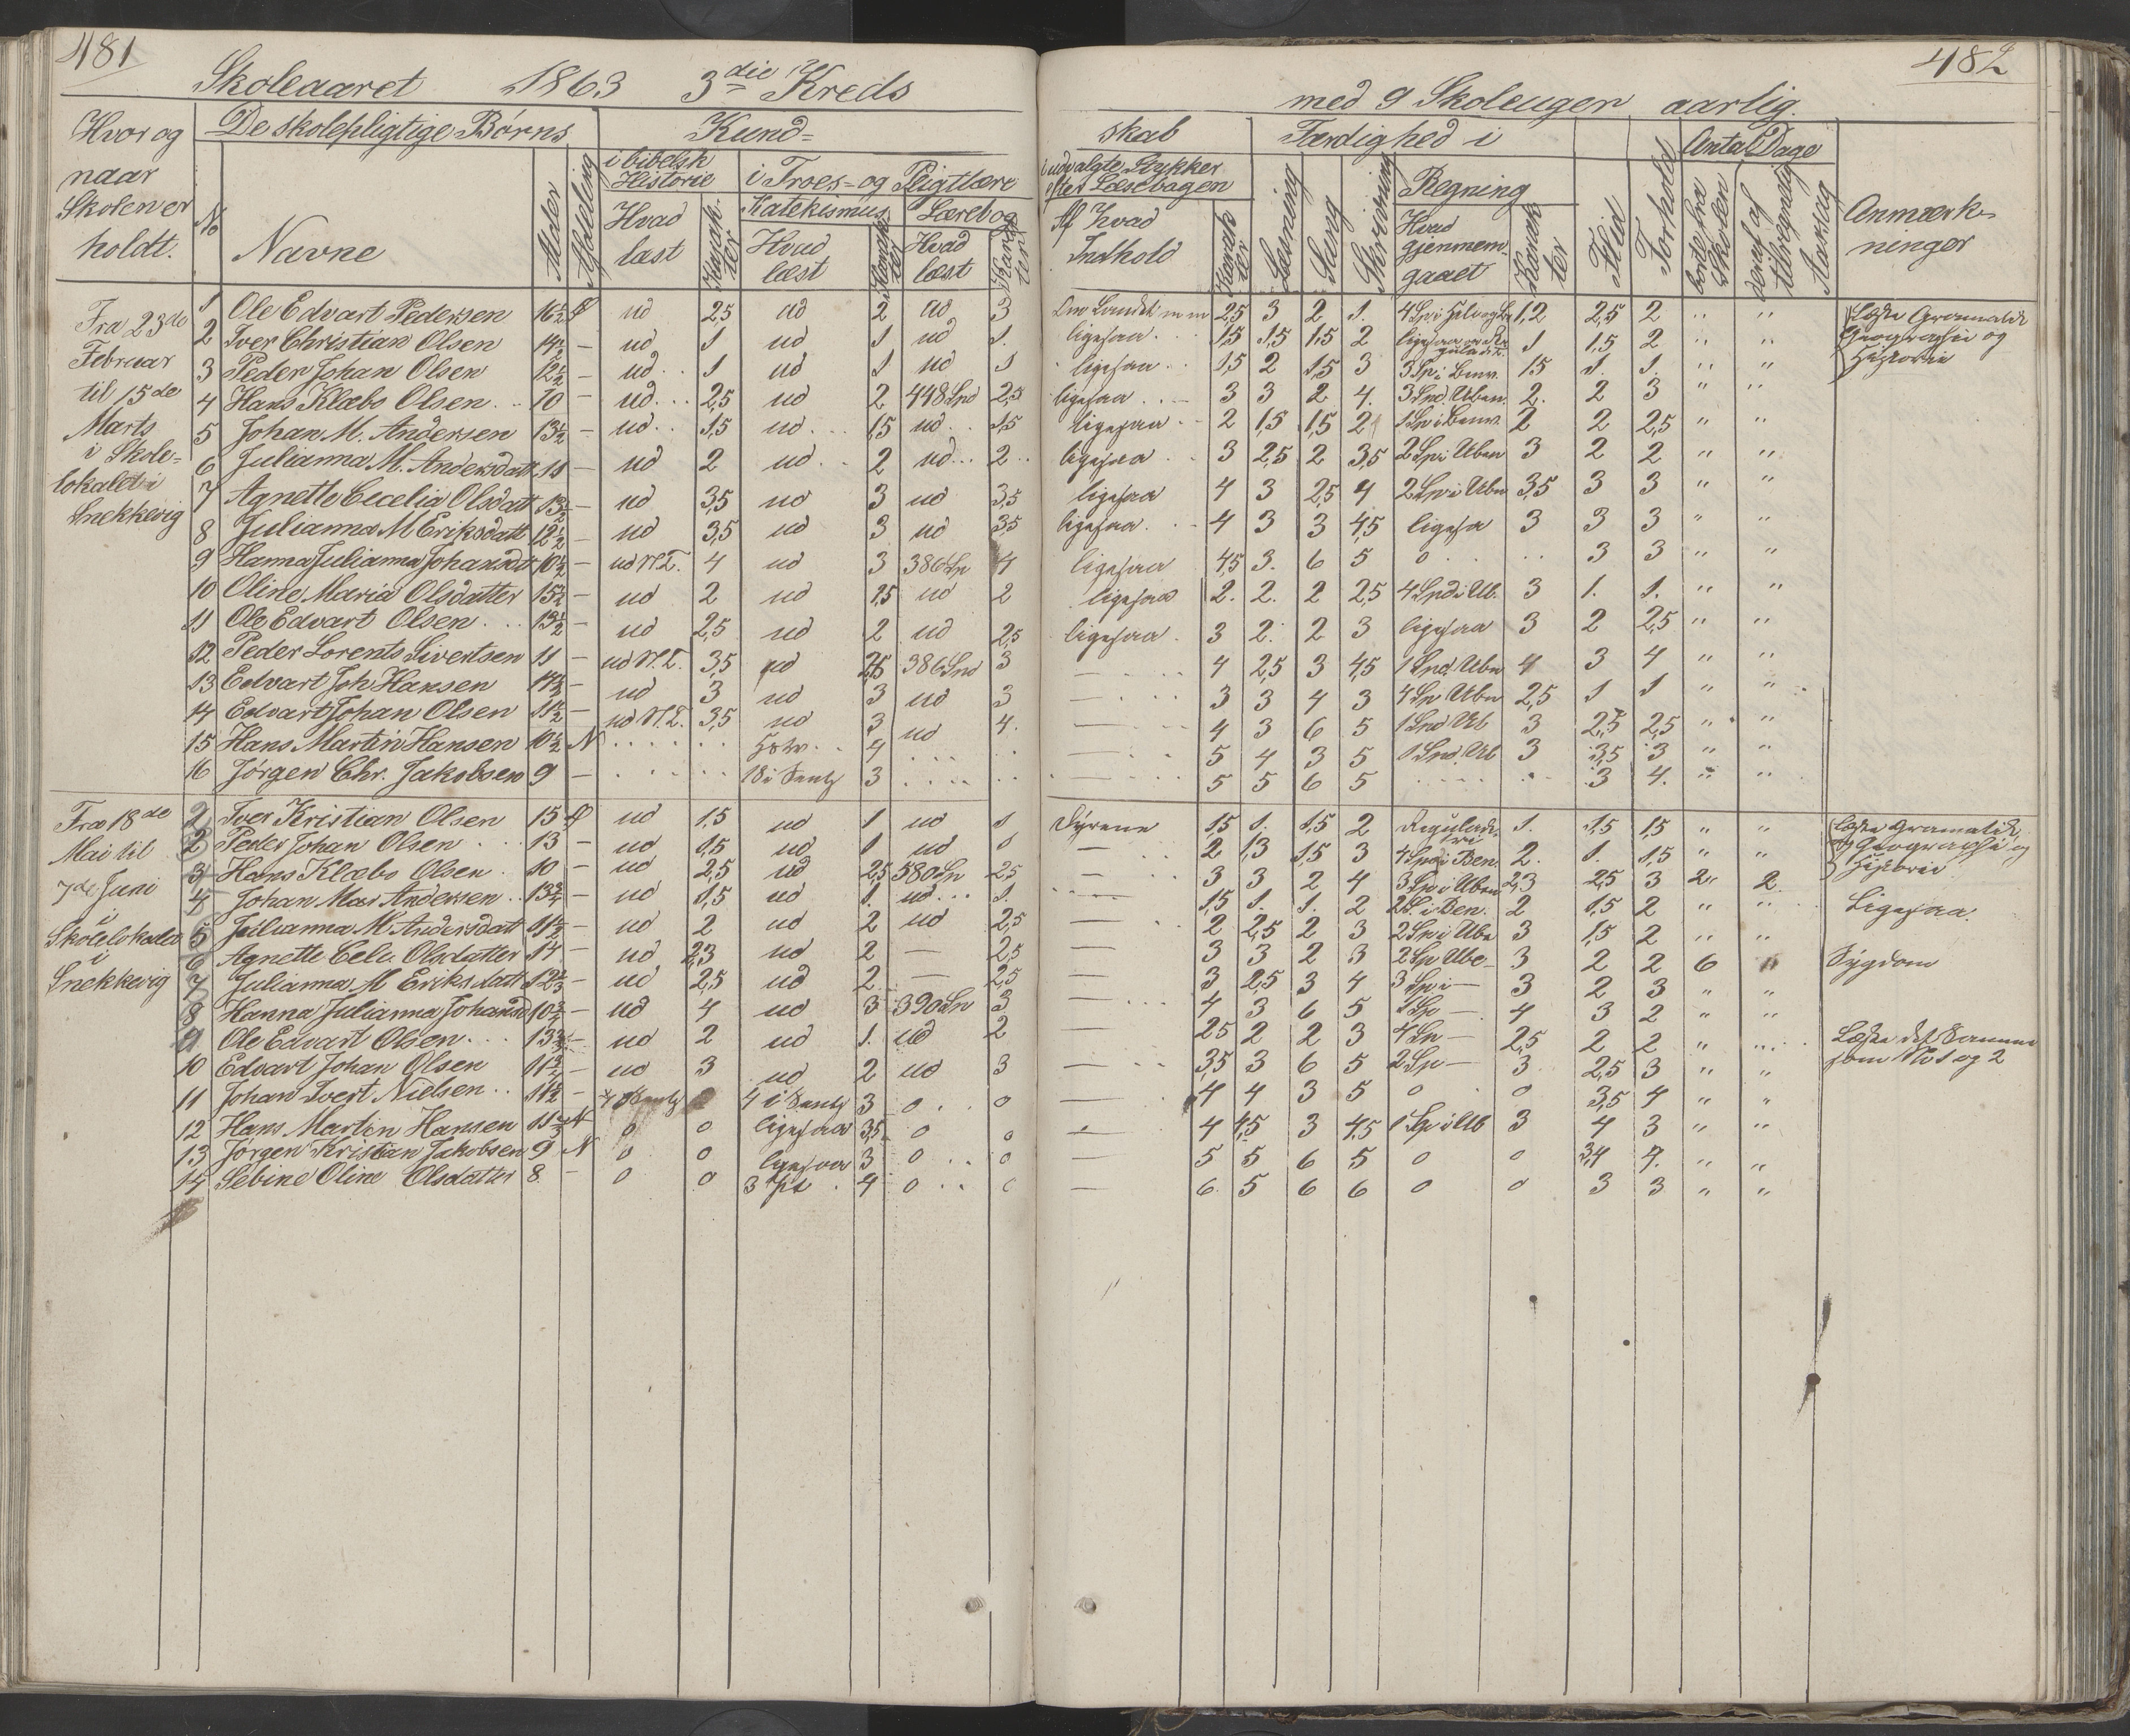 481
Skoleaaret 1863 3die Kreds
Hvor og naar Skolen er holdt.
De skolepligtige Børns
No Navne Alder Afdeling
Kund-
i bibelsk Historie
Hvad læst Karakter
i Troes- og Pligtlære
Katekismus Lærebog
Hvad læst Karakter Hvad læst Karakter
Fra 23de
Februar
til 15de
Marts
i Skole-
lokalet i
Snekkevig
1 Ole Edvart Pedersen 16½ ud 2,5 ud 2 ud 3
2 Iver Christian Olsen 14½ – ud 1 ud 1 ud 1.
3 Peder Johan Olsen 12½ – ud 1 ud 1 ud 1
4 Hans Klæbo Olsen 10 – ud 2,5 ud 2 448 Sp 2,5
5 Johan M. Andersen 13½ – ud 1,5 ud 1,5 ud 1,5
6 Julianna M. Andersdatt 11 – ud 2 ud 2 ud 2
7 Agnette Cecelia Olsdatt 13½ – ud 3,5 ud 3 ud 3,5
8 Julianna M Eriksdatt 12½ – ud 3,5 ud 3 ud 3,5
9 Hanna Julianna Johansdt 10½ – ud N.T. 4 ud 3 386 Sp 4
10 Oline Maria Olsdatter 15½ – ud 2 ud 1,5 ud 2
11 Ole Edvart Olsen 13½ – ud 2,5 ud 2 ud 2,5
12 Peder Lorents Sivertsen 11 – ud N.T. 3,5 ud 2,5 386 3
13 Edvart Joh Hansen 14½ – ud 3 ud 3 ud 3
14 Edvart Johan Olsen 11½ – ud N.T. 3,5 ud 3 ud 4.
15 Hans Martin Hansen 10½ N 4
16 Jørgen Chr. Jakobsen 9 – 18 i 3
Fra 18de
Mai til
7de Juni
i
Skolelokalet
i
Snekkevig
Iver Kristian Olsen 15 ud 1,5 ud 1 ud 1
2 Peder Johan Olsen 13 – ud 1,5 ud 1 ud 1
3 Hans Klæbo Olsen 10 – ud 2,5 ud 2,5 580 Sp 2,5
4 Johan Mar Andersen 13¾ – ud 1,5 ud 1. ud 1.
5 Julianna M Andersdatt 11½ – ud 2 ud 2 ud 2,5
6 Agnette Olsdatter 14 – ud 2,3 ud 2 — 2,5
7 Julianna M Eriksdatt – ud 2,5 ud 2 — 2,5
8 Hanna Julianna Johansd 10¾ – ud 4 ud 3 390 Sp 3
9 Ole Edvart Olsen 13¾ – ud 2 ud 1. ud 2
10 Edvart Johan Olsen – ud 3 ud 2 ud 3
11 Johan Ivert Nielsen 11½ – 4 i 3 0 0
12 Hans Martin Hansen N 0 0 ligesaa 3,5 0 0
13 Jørgen Kristian Jakobsen 9 N 0 0 ligesaa 3 0 0
14 Sebine Oline Olsdatter 8 – 0 0 4 0
482
med 9 Skoleuger aarlig.
skab
i udvalgte Stykker efter Læsebogen
Af hvad Indhold Karakter
Færdighed i
Læsning Sang Skrivning
Regning
Hvad gjennemgaaet Karakter
Flid Forhold
Antal Dage
borte fra Skolen deraf af tilbregnelig Aarsag
Anmærkninger
Om Landet 2,5 3 2 1. 1,2 2,5 2 " "
ligesaa 1,5 1,5 1,5 2 1 1,5 2 " "
ligesaa 1,5 2 1,5 3 3 Sp i Benv. 1,5 1. 1. " "
ligesaa 3 3 2 4. Uben. 2. 2 3 " "
ligesaa 2 1,5 1,5 2 1 Sp i Benv. 2 2 2,5 " "
ligesaa 3 2,5 2 3,5 2 Sp i Uben 3 2 2 " "
ligesaa 4 3 2,5 4 2 Sp i Ubn 3,5 3 3 " "
ligesaa 4 3 3 4,5 ligesa 3 3 3 " "
ligesaa 4,5 3. 6 5 0 3 3 " "
ligesaa 2. 2. 2 2,5 Ub. 3 1. 1. " "
ligesaa 3 2. 2 3 ligesaa 3 2 2,5 " "
— 4 2,5 3 4,5 Ubn 4 3 4 " "
— 3 3 4 3 4 Sp Ubn 2,5 1 1 " "
— 4 3 6 5 Ub 3 2,5 2,5 " "
— 5 4 3 5 Ub 3 3,5 3 " "
— 5 5 6 5 3 4. " "
Læste Gramatik
Geographie og
Historie
Dyrene 1,5 1. 1,5 2 Reguladetri 1. 1,5 1,5 " "
— 2 1,3 1,5 3 Ben. 2. 1. 1,5 " "
— 3 3 2 4 3 Sp i Uben 2,3 2,5 3 2 2
— 1,5 1. 1. 2 Ben. 2 1,5 2 " "
— 2 2,5 2 3 2 Sp i Ube 3 1,5 2 " "
— 3 3 2 3 2 Sp Ube 3 2 2 6 "
— 3 2,5 3 4 3 Sp i — 3 2 3 " "
— 4 3 6 5 1 Sp — 4 3 2 " "
— 2,5 2 2 3 4 Sp — 2,5 2 2 " "
— 3,5 3 6 5 2 Sp — 3 2,5 3 " "
— 4 4 3 5 0 0 3,5 4 " "
— 4 4,5 3 4,5 1 Sp i Ub 3 4 3 " "
— 5 5 6 5 0 0 3,4 4. " "
— 6 5 6 6 0 0 3 3 " "
Læste Gramatik
og Geographi og
Historie
Ligesaa.
Sygdom
Læste det Samme
som No 1 og 2